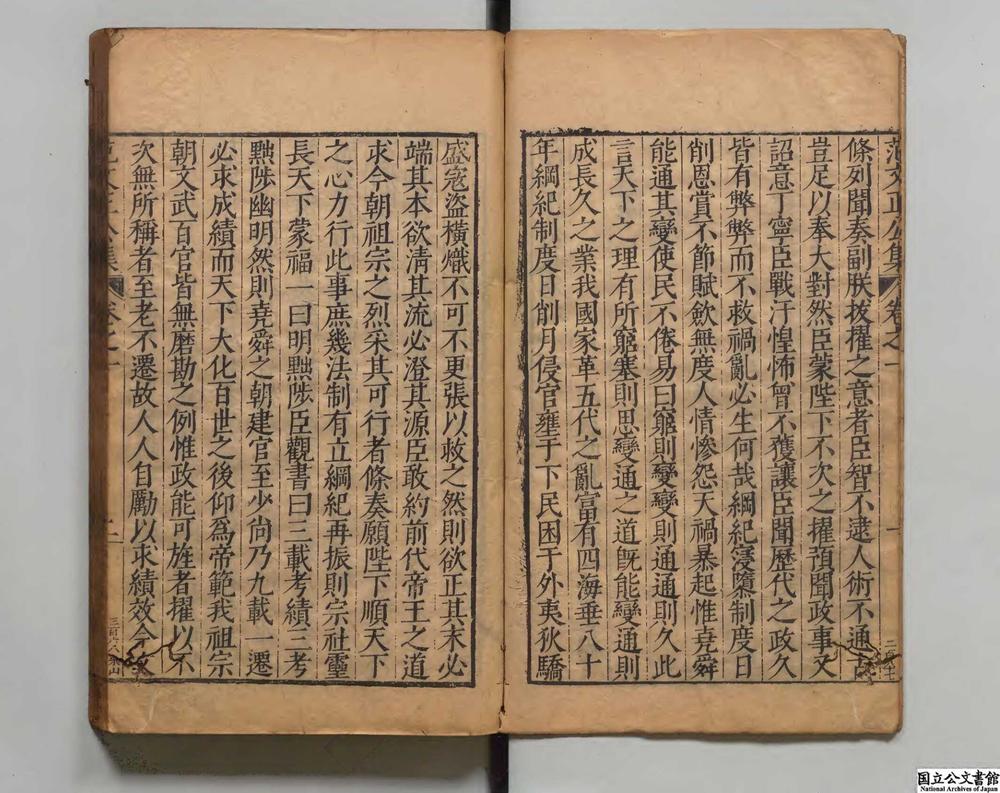 范文正公集 卷之一 一
條列聞奏副朕拔擢之意者臣智不逮人術不通古
豈足以奉大對然臣蒙陛下不次之擢預聞政事又
詔意丁寧臣戰汗惶怖曾不獲讓臣聞歷代之政久
皆有弊弊而不救禍亂必生何哉綱紀寖隳制度日
削恩賞不節賦斂無度人情慘怨天禍暴起惟堯舜
能通其變使民不倦易曰窮則變變則通通則久此
言天下之理有所窮塞則思變通之道旣能變通則
成長久之業我國家革五代之亂富有四海垂八十
年綱紀制度日削月侵官壅于下民困于外夷狄驕
盛寇盜橫熾不可不更張以救之然則欲正其末必
端其本欲淸其流必澄其源臣敢約前代帝王之道
求今朝祖宗之烈采其可行者條奏願陛下順天下
之心力行此事庶幾法制有立綱紀再振則宗社靈
長天下蒙福一曰明黜陟臣觀書曰三載考績三考
黜陟幽明然則堯舜之朝建官至少尚乃九載一遷
必求成績而天下大化百世之後仰爲帝範我祖宗
朝文武百官皆無磨勘之例惟政能可旌者擢以不
次無所稱者至老不遷故人人自勵以求績效今文
范文正公集 卷之一
国立公文書館
National Archives of Japan